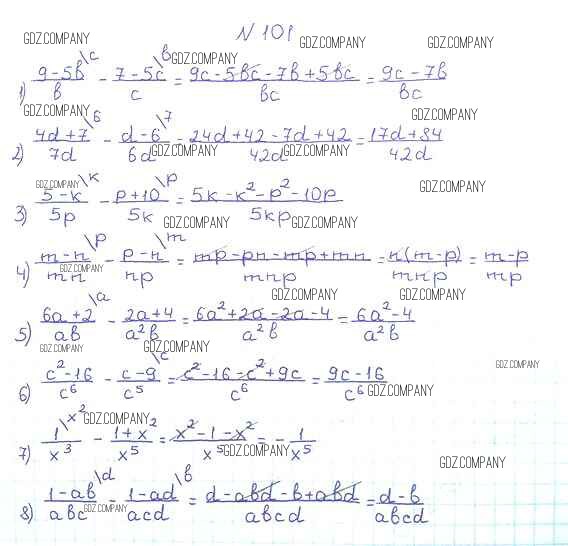 N 101
GDZ.COMPANY GDZ.COMPANY GDZ.COMPANY GDZ.COMPANY
1) (9-5b)/b \c - (7-5c)/c \b = (9c-5bc-7b+5bc)/bc = (9c-7b)/bc
GDZ.COMPANY GDZ.COMPANY
2) (4d+7)/7d \6 - (d-6)/6d \7 = (24d+42-7d+42)/42d = (17d+84)/42d
GDZ.COMPANY GDZ.COMPANY
GDZ.COMPANY GDZ.COMPANY
3) (5-k)/5p \k - (p+10)/5k \p = (5k-k²-p²-10p)/5kp
GDZ.COMPANY GDZ.COMPANY
4) (m-n)/mn \p - (p-n)/np \m = (mp-pn-mp+mn)/mnp = n(m-p)/mnp = (m-p)/mp
GDZ.COMPANY
GDZ.COMPANY GDZ.COMPANY
5) (6a+2)/ab \a - (2a+4)/a²b = (6a²+2a-2a-4)/a²b = (6a²-4)/a²b
GDZ.COMPANY GDZ.COMPANY GDZ.COMPANY
6) (c²-16)/c⁶ - (c-9)/c⁵ \c = (c²-16-c²+9c)/c⁶ = (9c-16)/c⁶
GDZ.COMPANY
GDZ.COMPANY
7) 1/x³ \x² - (1+x²)/x⁵ = (x²-1-x²)/x⁵ = -1/x⁵
GDZ.COMPANY GDZ.COMPANY
8) (1-ab)/abc \d - (1-ad)/acd \b = (d-abd-b+abd)/abcd = (d-b)/abcd
GDZ.COMPANY